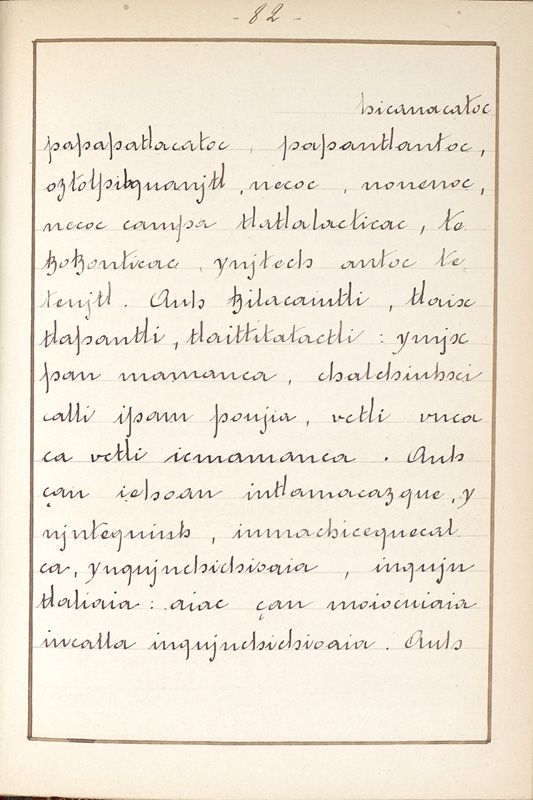 - 82 -
hicanacatoc
papapatlacatoc, papantlantoc,
oztolpibquanjtl, necoc, nonenoc,
necoc campa tlatlalacticac, te
tzotzonticac, ynjtech antoc te
tenjtl. Auh tzilacaintli, tlaix
tlapantli, tlaittitatactli: ymjx
pan mamanca, chalchiuhxi
calli ipam poujia, vetli vnca
ca vetli icmamanca. Auh
çan iehoan intlamacazque, y
njntequiuh, inmachicequecal
ca, ynqujnchichioaia, inqujn
tlaliaia: aiac çan moiocuiaia
incalla inqujnchichioaia. Auh